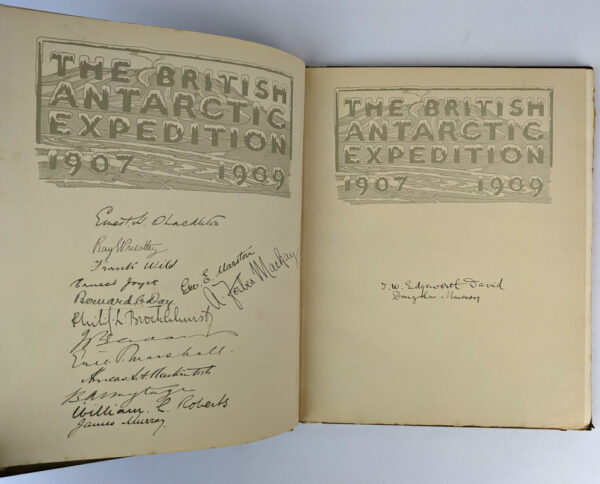 THE BRITISH
ANTARCTIC
EXPEDITION
1907 1909
Ernest H. Shackleton
Raymond Priestley
Frank Wild
Ernest Joyce
Bernard C. Day
Geo E. Marston
A Forbes Mackay
Philip L Brocklehurst
Eric S. Marshall.
Aeneas L A Mackintosh
B Armytage
William. C. Roberts
James Murray
THE BRITISH
ANTARCTIC
EXPEDITION
1907 1909
T. W. Edgeworth David
Douglas Mawson